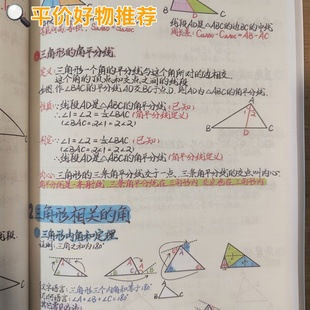 平价好物推荐
线段AD是△ABC的边BC的中线
C△ABD-C△ACD=AB-AC
三角形的角平分线
定义:三角形一个角的平分线与这个角所对的边相交,
这个角的顶点和交点之间的线段.
作∠BAC的平分线AD交BC于点D,则AD为△ABC的角平分线.
∵线段AD是△ABC的角平分线(已知)
∴∠1=∠2=½∠BAC(角平分线定义)
(∠BAC=2∠1=2∠2)
∵∠1=∠2=½∠BAC(已知)
(∠BAC=2∠1=2∠2)
∴线段AD是△ABC的角平分线(角平分线定义)
三角形的三条角平分线交于一点,三条角平分线的交点叫内心.
三角形相关的角
三角形内角和定理
三角之和为180°
文字语言:三角形三个内角和等于180°
几何语言:∠A+∠B+∠C=180°